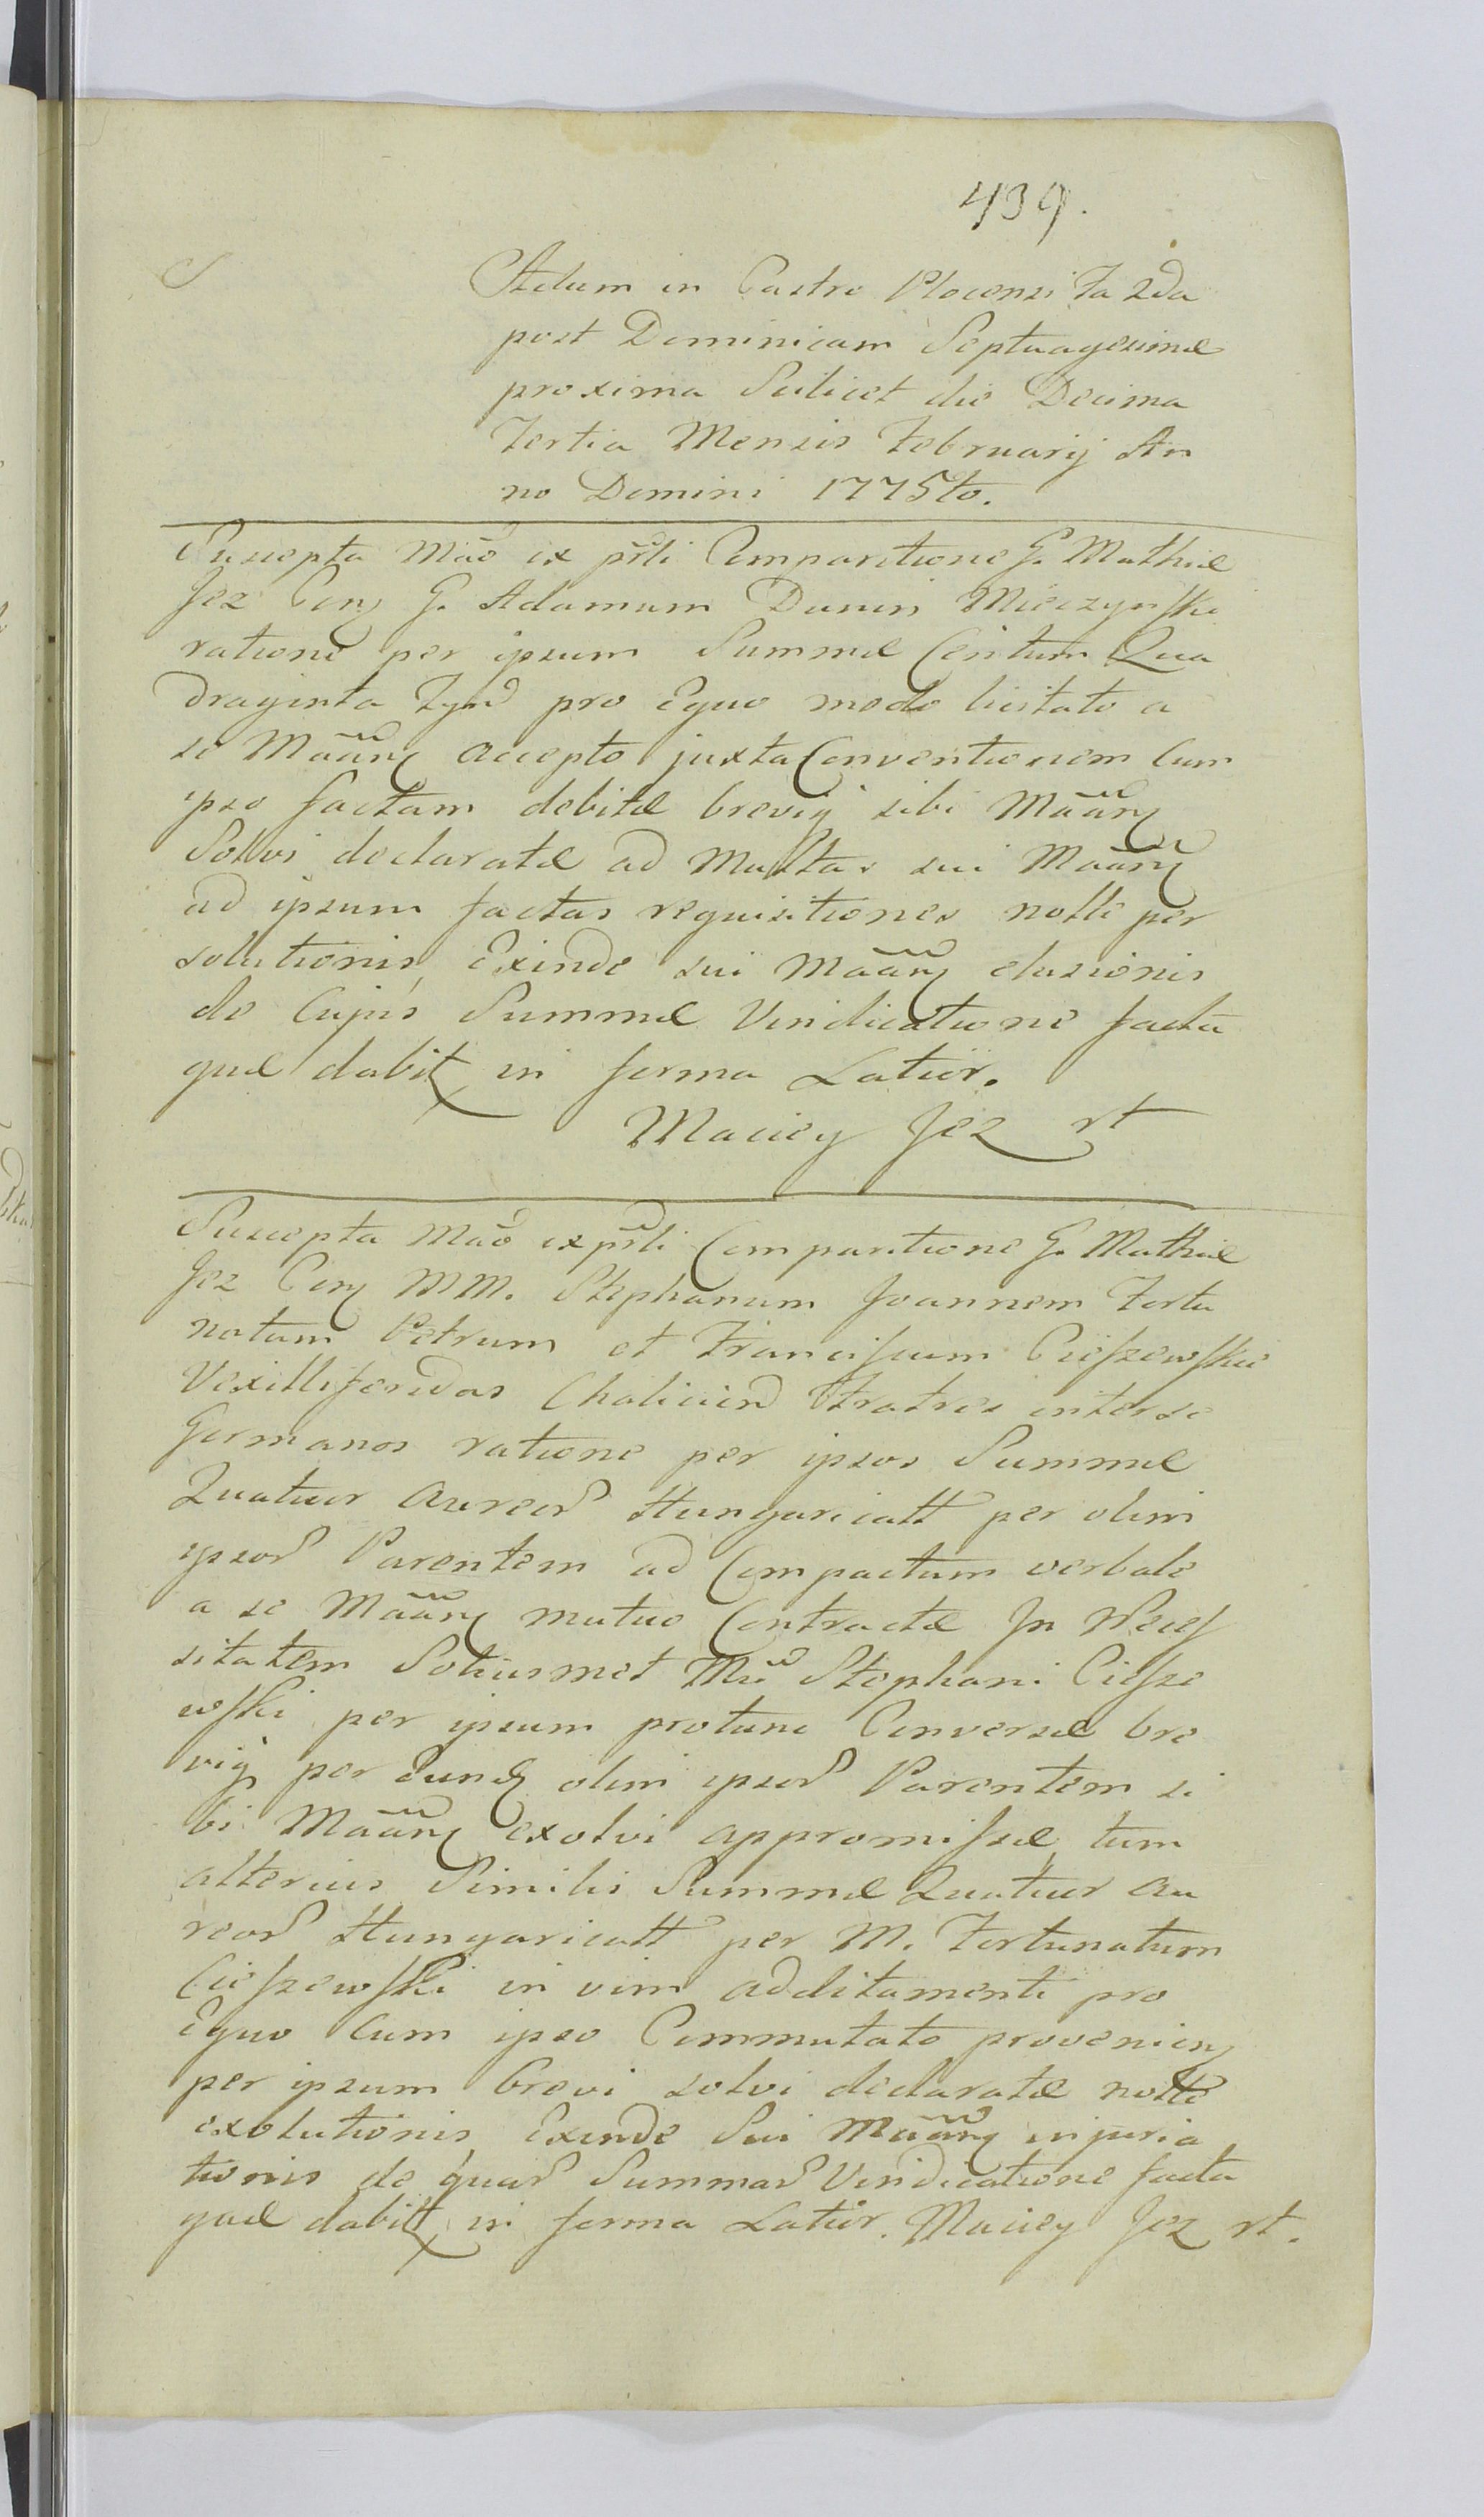 439.
Actum in Castro Plocensi Fa 2da
post Dominicam Septuagesimæ
proxima Scilicet die Decima
Tertia Mensis Februarij An
no Domini 1775to.
Suscepta Mãe ex prñli Comparitione G. Mathiæ
Jez Con̨ G. Adamum Dunin Mieczynski
ratione per ipsum Summæ Centum Qua
draginta Tynf pro Equo modo licitato a
se Mãan̨ accepto juxta Conventionem Cum
ipso factam debitæ brevij sibi Mãan̨
Solvi declaratæ ad Multas sui Mãan̨
ad ipsum factas requisitiones nolle per
solutionis, Exinde sui Mãan̨ elusionis
de Cujus Summæ Vindicatione facta
quæ dabit in forma Latior.
Maciey Jez rt
Suscepta Mãe ex prñli Comparitione G. Mathiæ
Jez Con̨ MM. Stephanum Joannem Fortu
natum Petrum et Franciscum Cieszewskie
Vexilliferidas Chalicien Fratres inter se
Germanos ratione per ipsos Summæ
Quatuor Aureor Hungaricall per olim
ipsor Parentem ad Compactum verbale
a se Mãan̨ mutuo Contractæ In Neces
sitatem Soliusmet Mci Stephani Ciesze
wski per ipsum protunc Conversæ bre
vij per Eund olim ipsor Parentem si
bi Mãan̨ exolvi appromissæ, tum
alterius Similis Summæ Quatuor Au
reor Hungaricall per M. Fortunatum
Cieszewski in vim additamenti pro
Equo Cum ipso Commutato provenien̨
per ipsum brevi solvi declaratæ nolle
exolutionis, Exinde Sui Mãan̨ injuria
tionis de quar Summar Vindicatione facta
quæ dabit in forma Latior. Maciey Jez rt.